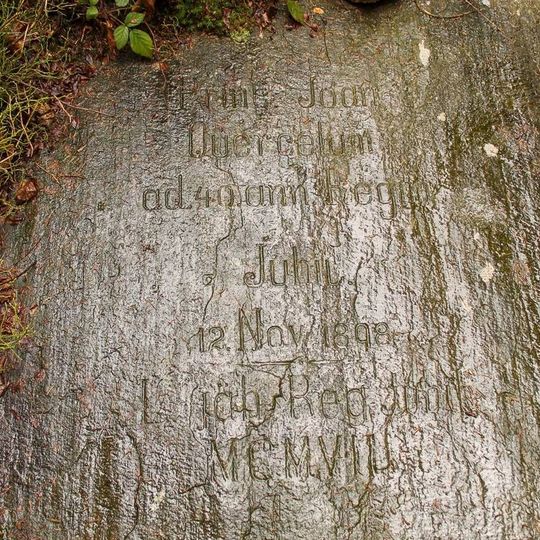 Prinz Joan
Quercetum
ad. 40. ann Regim
Jubil.
12. Nov. 1898
L jäh. Reg. Jubil.
MCMVIII